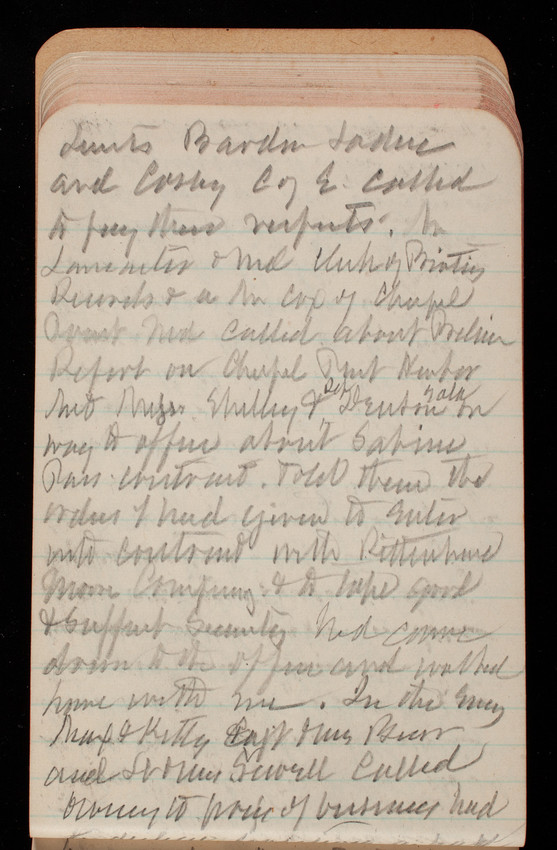 Lieuts Bardin Ladue
and Cosby C of E. called
to pay their respects. Mr
Lancaster & Md Clerk of
Records & a Mr Cox of Chapel
Point Md called about Prelim
Report on Chapel Point Harbor
Met Messrs. Shelley & Denton on
way to office about Sabine
Pass contract. Told them the
orders I had given to Enter
into contract with Rittenhouse
Moore Company & to take good
& sufficient Security Ned came
down to the office and walked
home with me. In the Eveng
Max & Kitty Capt & Mrs
and Lt & Mrs Sewell Called
Owing to press of business had